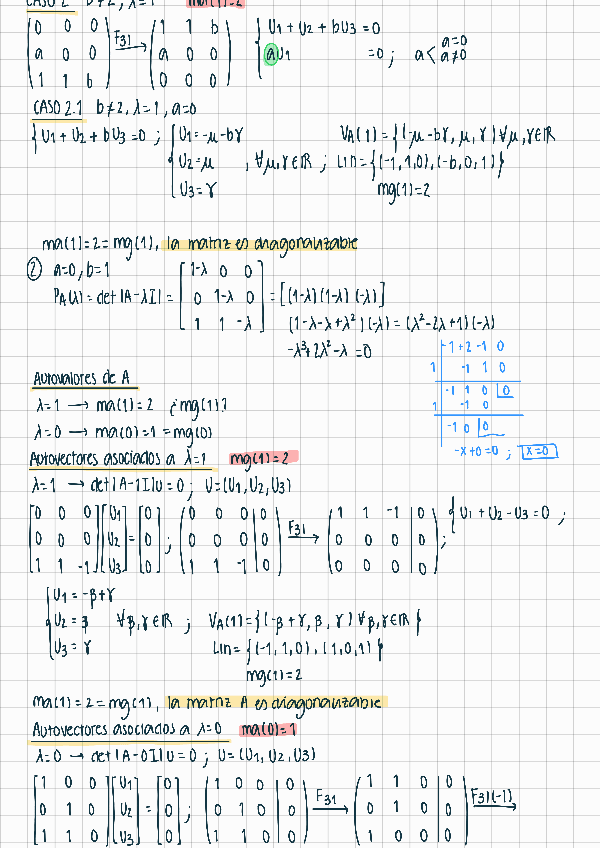 CASO 2 b≠2, λ=1 ma(1)=2
(0 0 0; a 0 0; 1 1 b) F31→ (1 1 b; a 0 0; 0 0 0) { U1 + U2 + bU3 = 0; aU1 = 0 ; a < a=0 a≠0
CASO 2.1 b≠2, λ=1, a=0
{ U1 + U2 + bU3 = 0 ; { U1 = -μ - bγ U2 = μ U3 = γ , ∀μ,γ∈ℝ ; VA(1) = {(-μ-bγ, μ, γ) ∀μ,γ∈ℝ
Lin = {(-1,1,0), (-b,0,1)}
mg(1)=2
ma(1)=2=mg(1), la matriz es diagonalizable
② a=0, b=1
PA(λ) = det|A-λI| = [1-λ 0 0; 0 1-λ 0; 1 1 -λ] = [(1-λ)(1-λ)(-λ)]
(1-λ-λ+λ²)(-λ) = (λ²-2λ+1)(-λ)
-λ³+2λ²-λ=0
-1 +2 -1 0
1 -1 1 0
-1 1 0 0
1 -1 0
-1 0 0
-x+0=0 ; x=0
Autovalores de A
λ=1 → ma(1)=2 ¿mg(1)?
λ=0 → ma(0)=1=mg(0)
Autovectores asociados a λ=1 mg(1)=2
λ=1 → det|A-1I|U=0 ; U=(U1,U2,U3)
[0 0 0; 0 0 0; 1 1 -1] [U1; U2; U3] = [0; 0; 0] ; (0 0 0 | 0; 0 0 0 | 0; 1 1 -1 | 0) F31→ (1 1 -1 | 0; 0 0 0 | 0; 0 0 0 | 0) ; { U1 + U2 - U3 = 0 ;
{ U1 = -β+γ U2 = β U3 = γ ∀β,γ∈ℝ ; VA(1) = {(-β+γ, β, γ) ∀β,γ∈ℝ}
Lin = {(-1,1,0), (1,0,1)}
mg(1)=2
ma(1)=2=mg(1), la matriz A es diagonalizable
Autovectores asociados a λ=0 ma(0)=1
λ=0 → det|A-0I|U=0 ; U=(U1,U2,U3)
[1 0 0; 0 1 0; 1 1 0] [U1; U2; U3] = [0; 0; 0] ; (1 0 0 | 0; 0 1 0 | 0; 1 1 0 | 0) F31→ (1 1 0 | 0; 0 1 0 | 0; 1 0 0 | 0) F31(-1)→